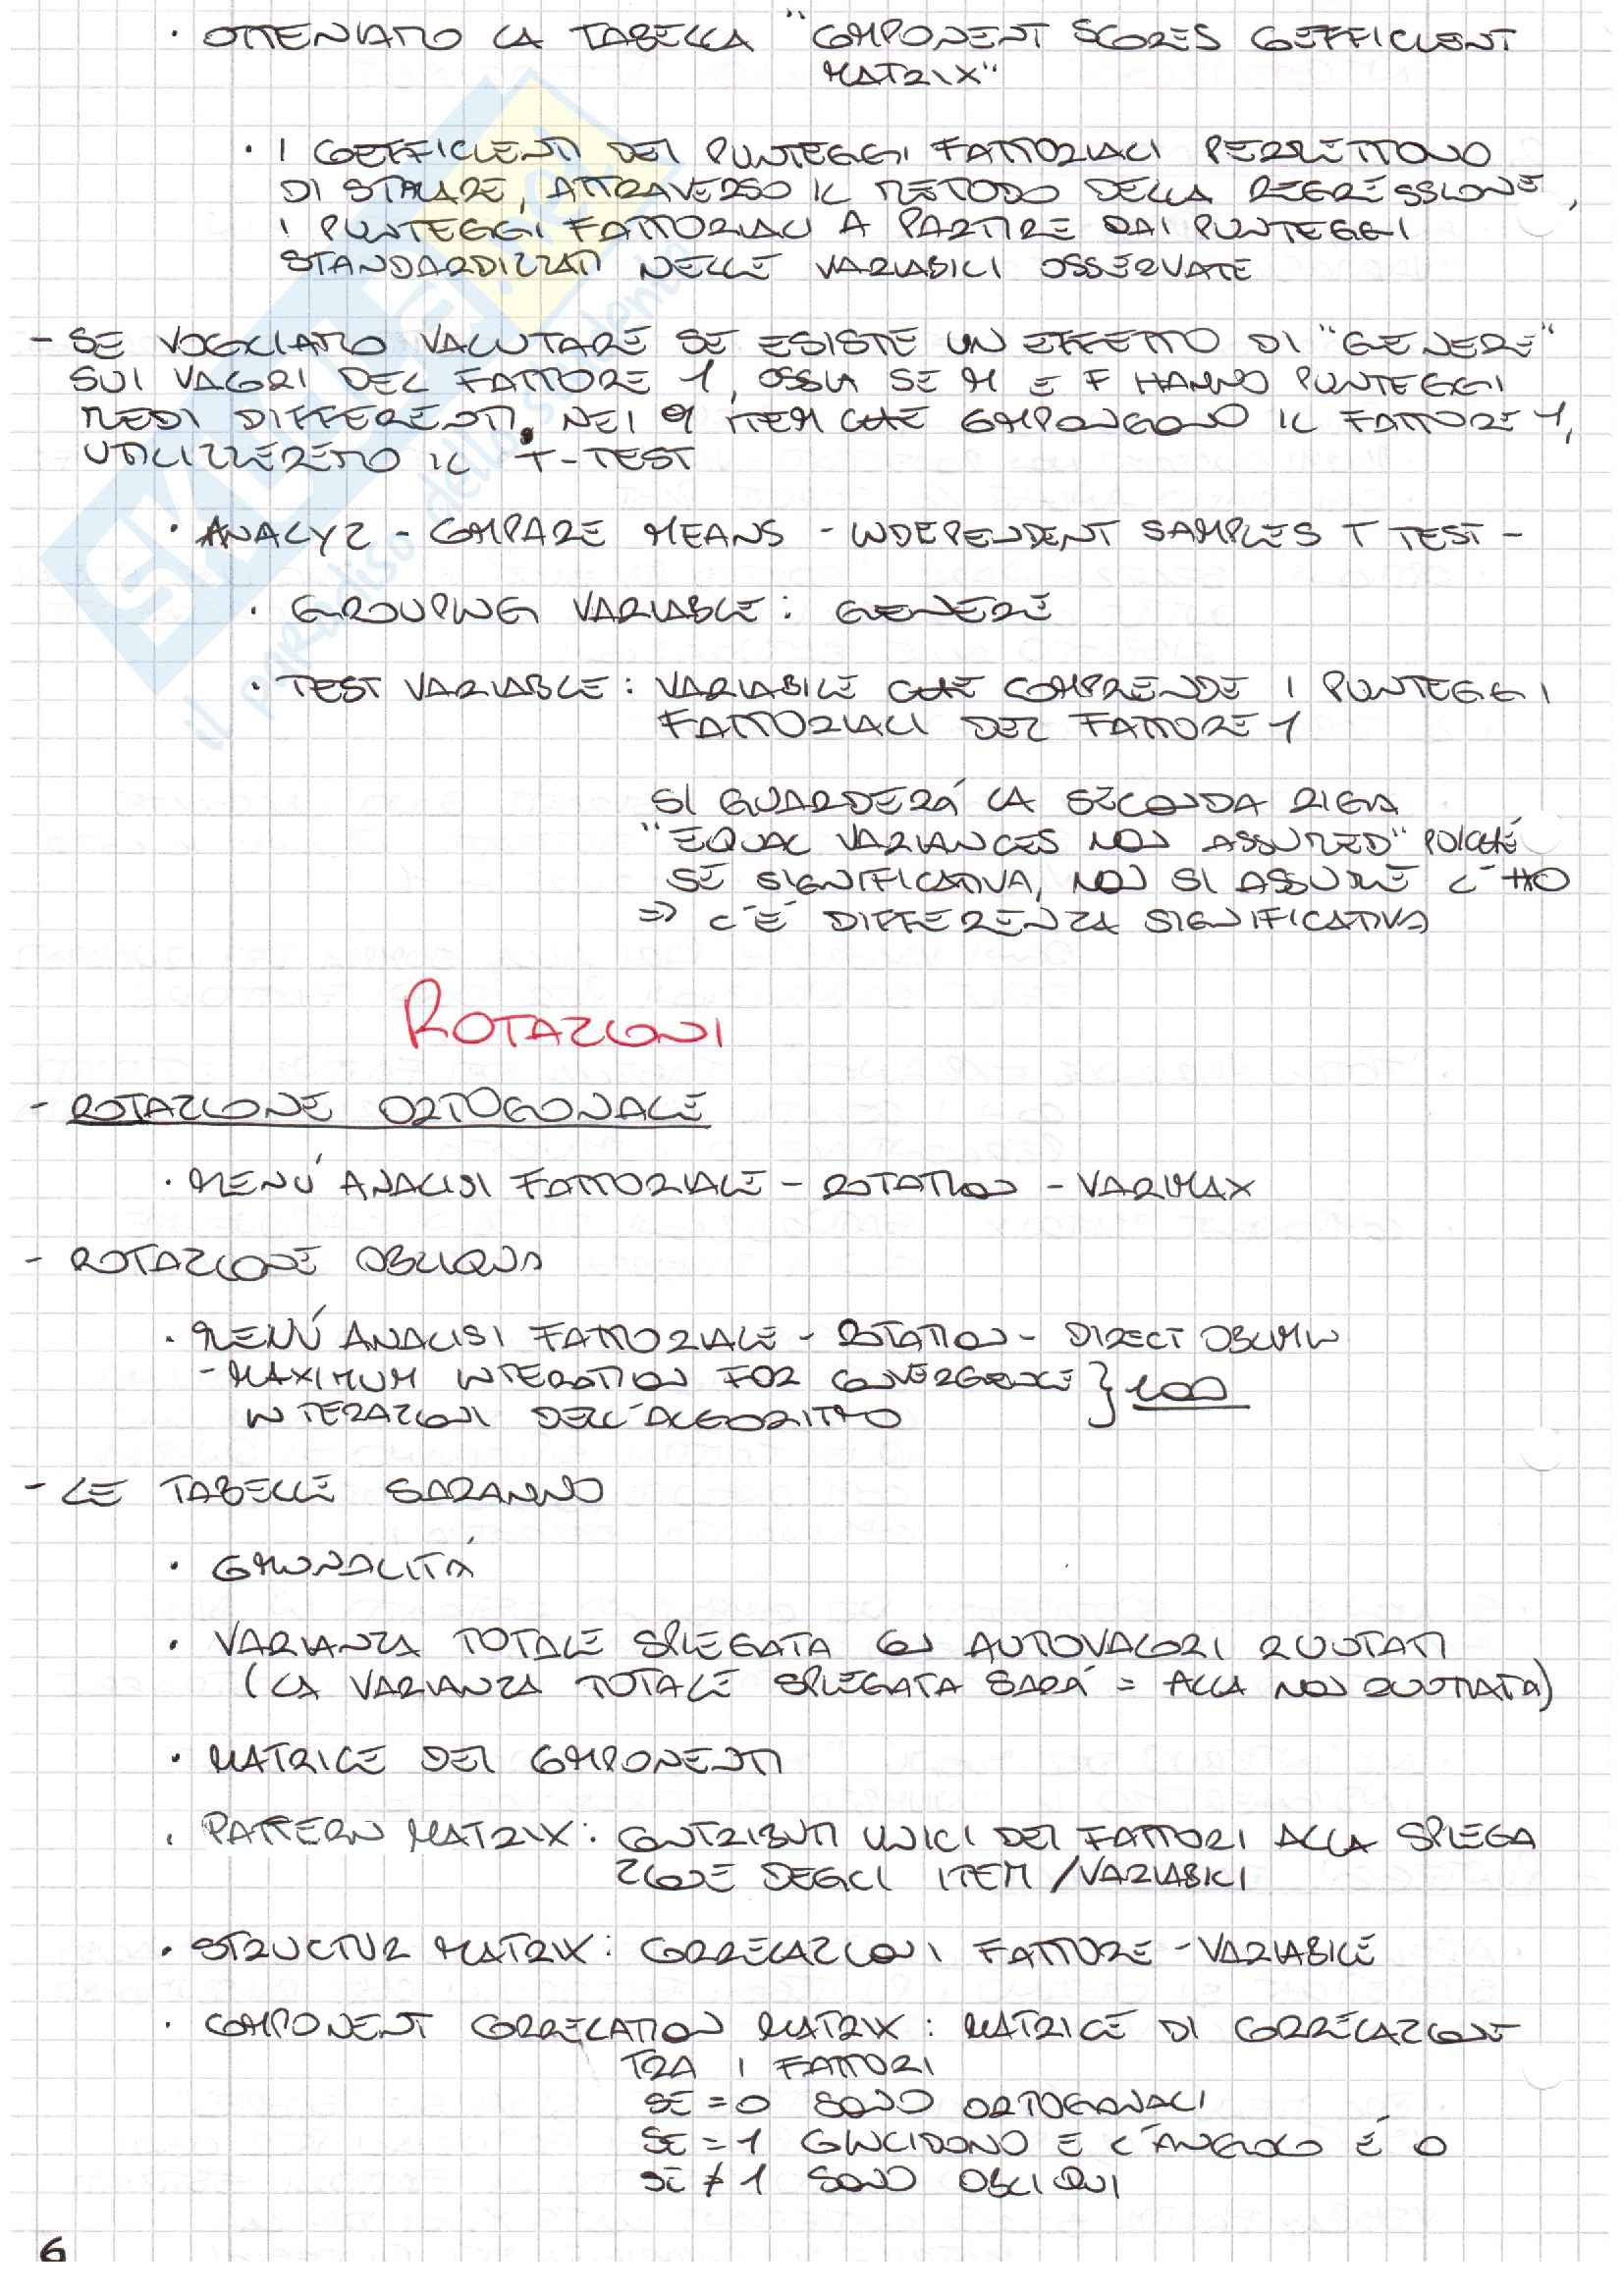 · OTTENIAMO LA TABELLA "COMPONENT SCORES COEFFICIENT
MATRIX"
· I COEFFICIENTI DEI PUNTEGGI FATTORIALI PERMETTONO
DI STIMARE, ATTRAVERSO IL METODO DELLA REGRESSIONE,
I PUNTEGGI FATTORIALI A PARTIRE DAI PUNTEGGI
STANDARDIZZATI NELLE VARIABILI OSSERVATE
- SE VOGLIAMO VALUTARE SE ESISTE UN EFFETTO DI "GENERE"
SUI VALORI DEL FATTORE 1, OSSIA SE M E F HANNO PUNTEGGI
MEDI DIFFERENTI, NEI 9 ITEM CHE COMPONGONO IL FATTORE 1,
UTILIZZEREMO IL T-TEST
· ANALYZ - COMPARE MEANS - INDEPENDENT SAMPLES T TEST -
· GROUPING VARIABLE: GENERE
· TEST VARIABLE: VARIABILE CHE COMPRENDE I PUNTEGGI
FATTORIALI DEL FATTORE 1
SI GUARDERÁ LA SECONDA RIGA
"EQUAL VARIANCES NON ASSUMED" POICHÉ
SE SIGNIFICATIVA, NON SI ASSUME L'H0
=> C'É DIFFERENZA SIGNIFICATIVA
ROTAZIONI
- ROTAZIONE ORTOGONALE
· MENÚ ANALISI FATTORIALE - ROTATION - VARIMAX
- ROTAZIONE OBLIQUA
· MENÚ ANALISI FATTORIALE - ROTATION - DIRECT OBLIMIN
- MAXIMUM INTERATION FOR CONVERGENCE } 100
INTERAZIONI DELL'ALGORITMO
- LE TABELLE SARANNO
· COMUNALITÁ
· VARIANZA TOTALE SPIEGATA CON AUTOVALORI RUOTATI
(LA VARIANZA TOTALE SPIEGATA SARÁ = ALLA NON RUOTATA)
· MATRICE DEI COMPONENTI
· PATTERN MATRIX: CONTRIBUTI UNICI DEI FATTORI ALLA SPIEGA
ZIONE DEGLI ITEM/VARIABILI
· STRUCTUR MATRIX: CORRELAZIONI FATTORE - VARIABILE
· COMPONENT CORRELATION MATRIX: MATRICE DI CORRELAZIONE
TRA I FATTORI
SE = 0 SONO ORTOGONALI
SE = 1 COINCIDONO E L'ANGOLO É 0
SE ≠ 1 SONO OBLIQUI
6